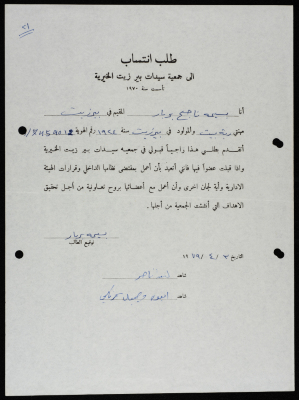 طلب انتساب
الى جمعية سيدات بير زيت الخيرية
تأسست سنة ١٩٧٠
أنا بسمه ناجح المقيم في بيرزيت
مهنتي ربة بيت والمولود في بيرزيت سنة ١٩٤٤ رقم الهوية
أتقدم بطلبي هذا راجياً قبولي في جمعية سيدات بير زيت الخيرية
واذا قبلت عضواً فيها فاني أتعهد بأن أعمل بمقتضى نظامها الداخلي وقرارات الهيئة
الادارية وأية لجان اخرى وأن أعمل مع أعضائها بروح تعاونية من أجل تحقيق
الاهداف التي أنشئت الجمعية من أجلها .
بسمه
توقيع الطالب
التاريخ ٣ / ٤ / ١٩٧٩
شاهد
شاهد